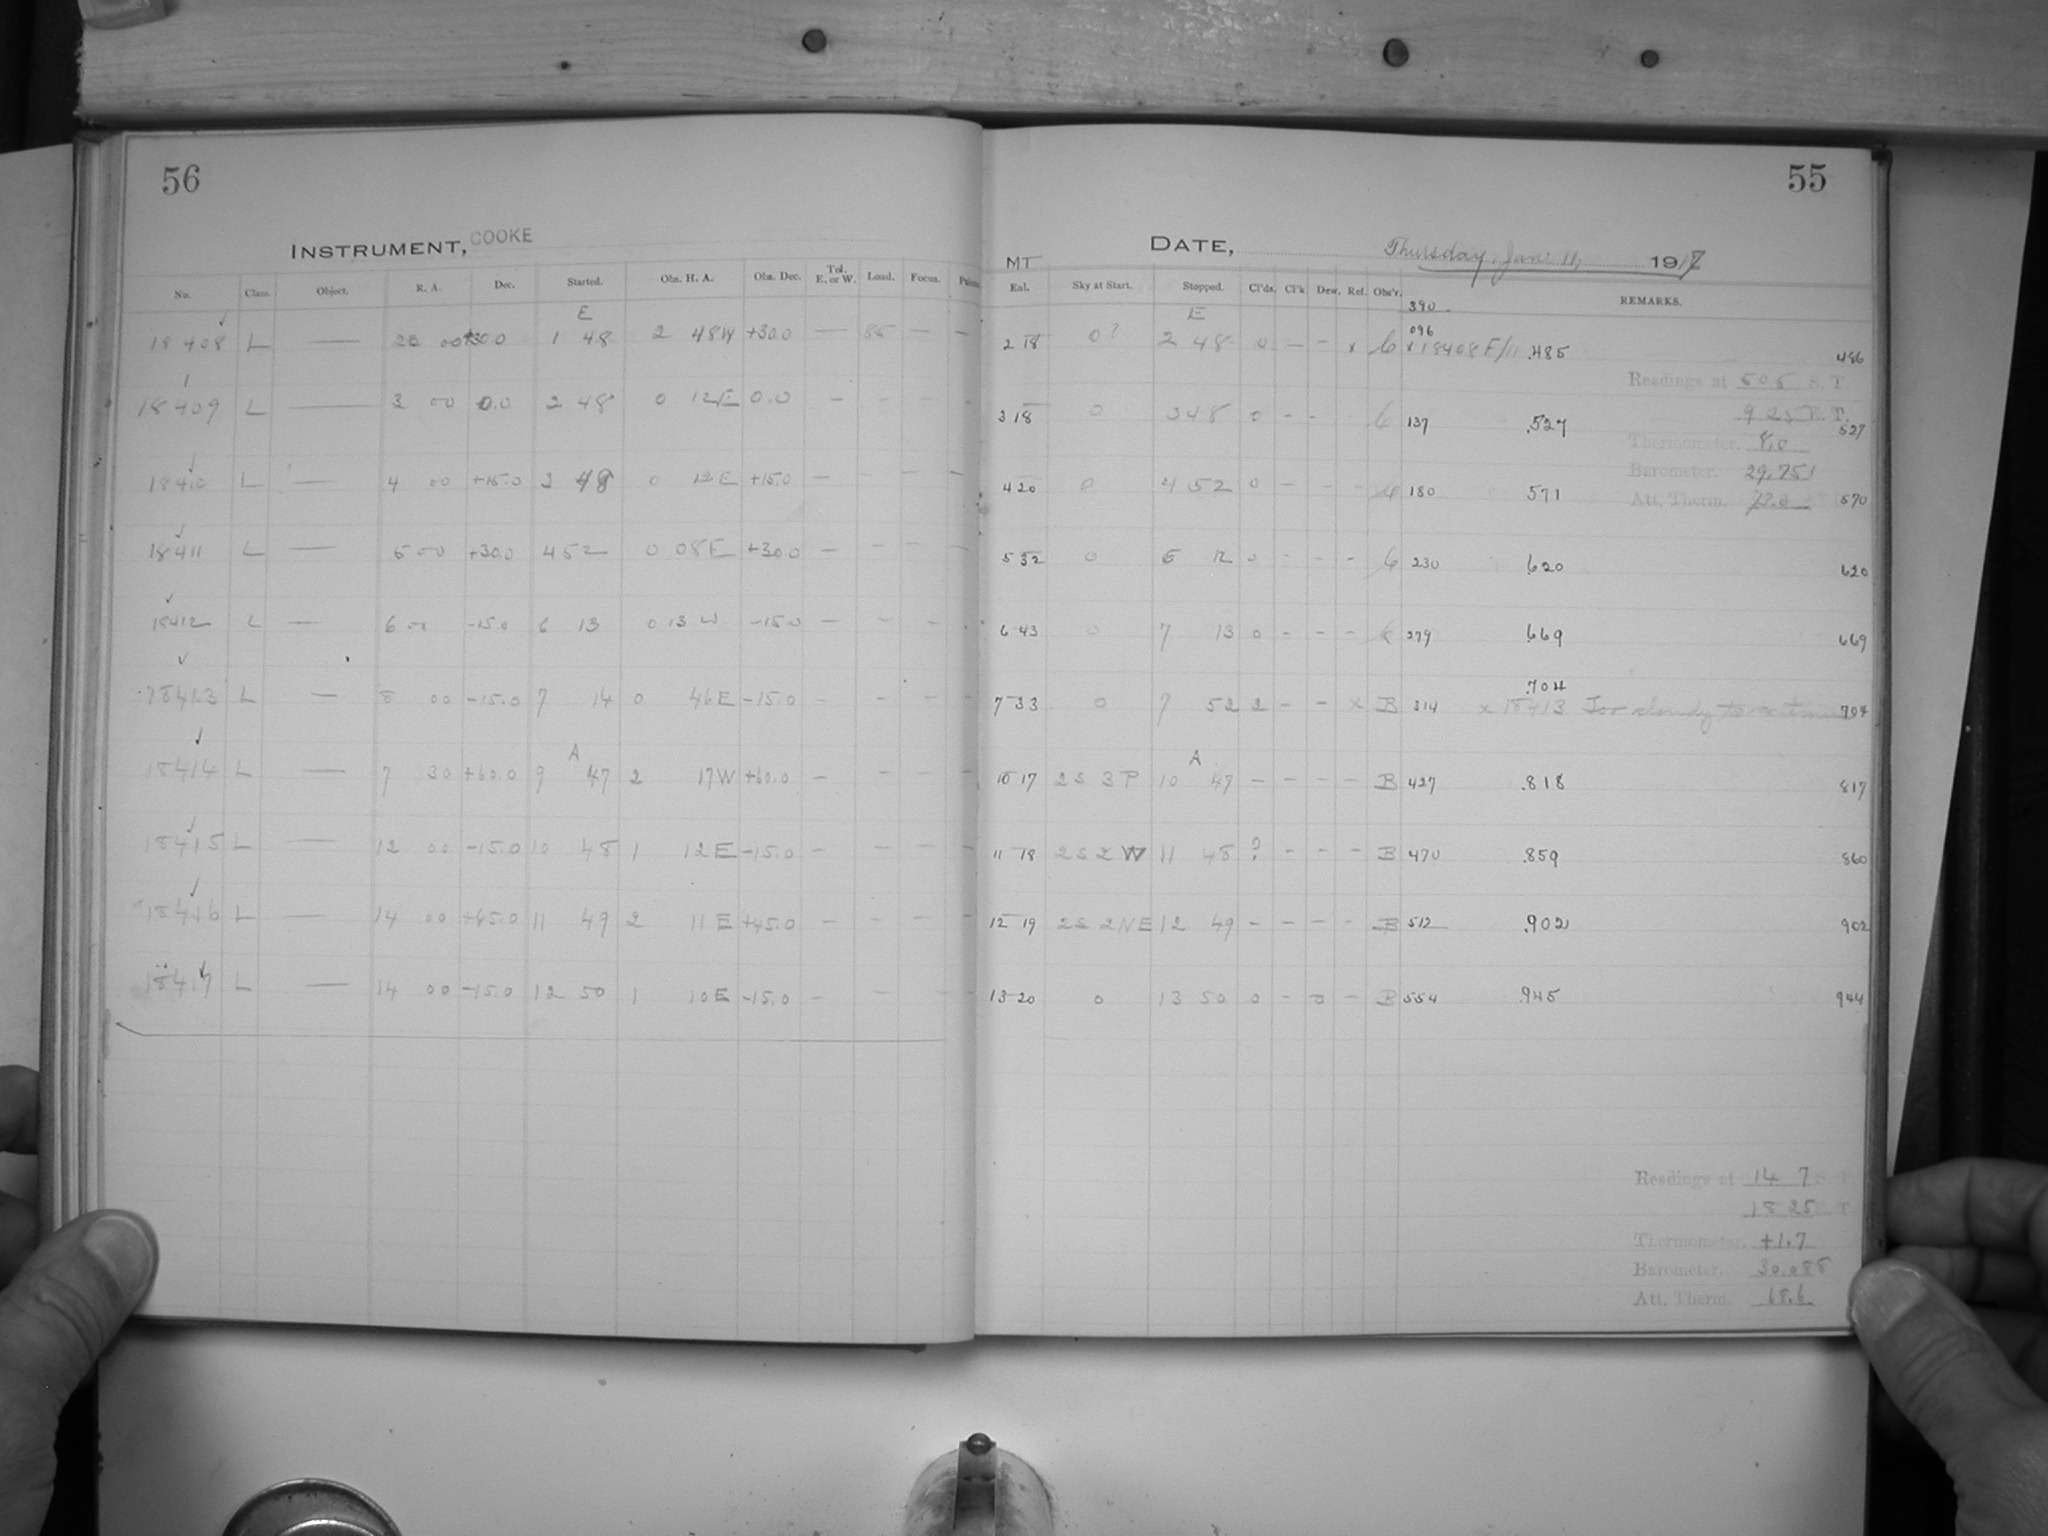 56
INSTRUMENT, COOKE
No. Class. Object. R. A. Dec. Started. Obs. H. A. Obs. Dec. Tel. E. or W. Load. Focus.
E
18408 L — 23 00 +30.0 1 48 2 48W +30.0 — — —
18409 L — 3 00 0.0 2 48 0 12E 0.0 - - - -
18410 L — 4 00 +15.0 3 48 0 12E +15.0 — - - -
18411 L — 5 00 +30.0 4 52 0 08E +30.0 — - - -
18412 L — 6 00 -15.0 6 13 0 13 W -15.0 — - -
18413 L — 8 00 -15.0 7 14 0 46E -15.0 - - - -
A
18414 L — 7 30 +60.0 9 47 2 17W +60.0 - - - -
18415 L — 12 00 -15.0 10 48 1 12E -15.0 - - - -
18416 L — 14 00 +45.0 11 49 2 11E +45.0 - - - -
18417 L — 14 00 -15.0 12 50 1 10E -15.0 - - -
55
DATE, Thursday, Jan. 11, 1917
MT
Eal. Sky at Start. Stopped. Cl'ds. Cl'k Dew. Ref. Obs'r. REMARKS.
390
E
096
2 18 0? 2 48 0 - - x 6 x 18408 F/11 .485 486
Readings at S. T.
3 18 0 3 48 0 - - - 6 137 .527 527
9 25 E. T.
Thermometer. 8.0
Barometer. 29.751
4 20 0 4 52 0 - - - 6 180 571 570
Att. Therm.
5 32 0 6 12 0 - - - 6 230 620 620
6 43 0 7 13 0 - - - 6 279 .669 669
.704
7 33 0 7 52 2 - - x B 314 x 18413 Too cloudy to continue 704
A
10 17 2S 3P 10 47 - - - - B 427 .818 817
11 18 2S 2W 11 48 ? - - - B 470 .859 860
12 19 2S 2NE 12 49 - - - - B 512 .902 902
13 20 0 13 50 0 - 0 - B 554 .945 944
Readings at 14 7 S. T
18 25 E. T
Thermometer. +1.7
Barometer. 30.088
Att. Therm. 68.6